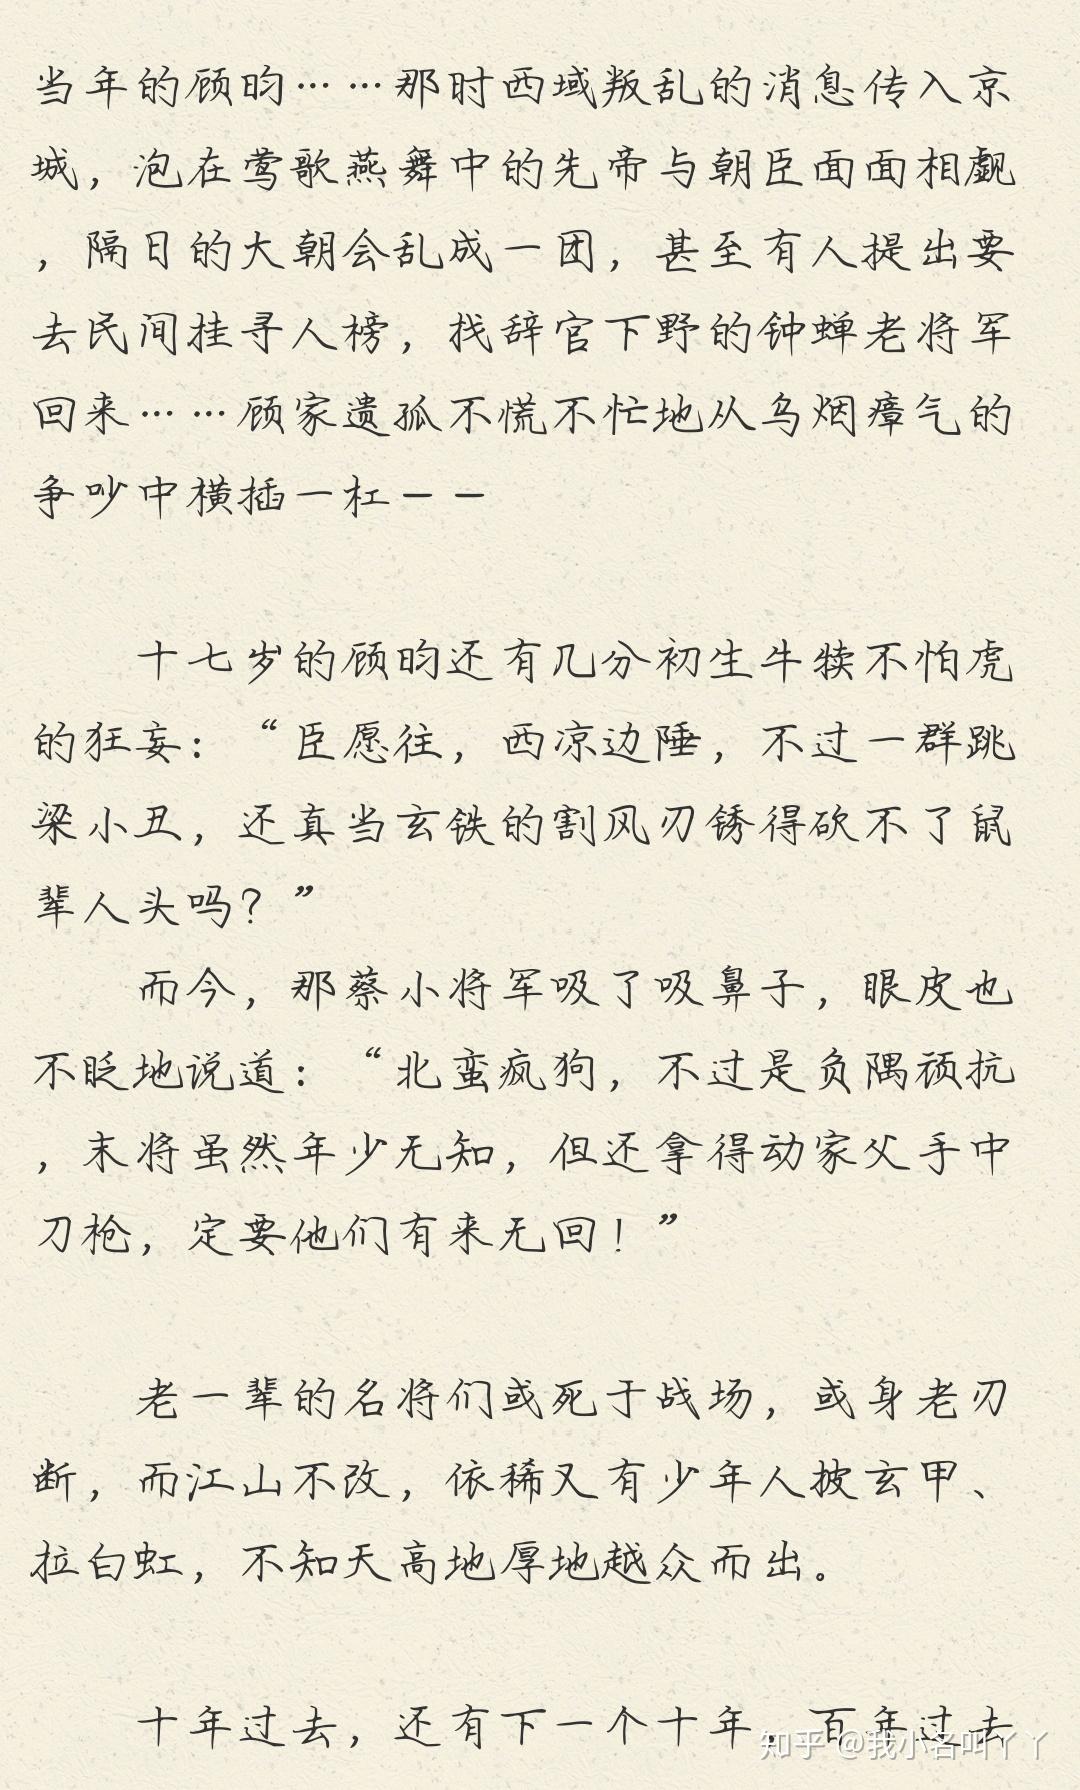 当年的顾昀……那时西域叛乱的消息传入京
城，泡在莺歌燕舞中的先帝与朝臣面面相觑
，隔日的大朝会乱成一团，甚至有人提出要
去民间挂寻人榜，找辞官下野的钟蝉老将军
回来……顾家遗孤不慌不忙地从乌烟瘴气的
争吵中横插一杠——
十七岁的顾昀还有几分初生牛犊不怕虎
的狂妄：“臣愿往，西凉边陲，不过一群跳
梁小丑，还真当玄铁的割风刃锈得砍不了鼠
辈人头吗？”
而今，那蔡小将军吸了吸鼻子，眼皮也
不眨地说道：“北蛮疯狗，不过是负隅顽抗
，末将虽然年少无知，但还拿得动家父手中
刀枪，定要他们有来无回！”
老一辈的名将们或死于战场，或身老刃
断，而江山不改，依稀又有少年人披玄甲、
拉白虹，不知天高地厚地越众而出。
十年过去，还有下一个十年，百年过去
知乎 @我小名叫丫丫